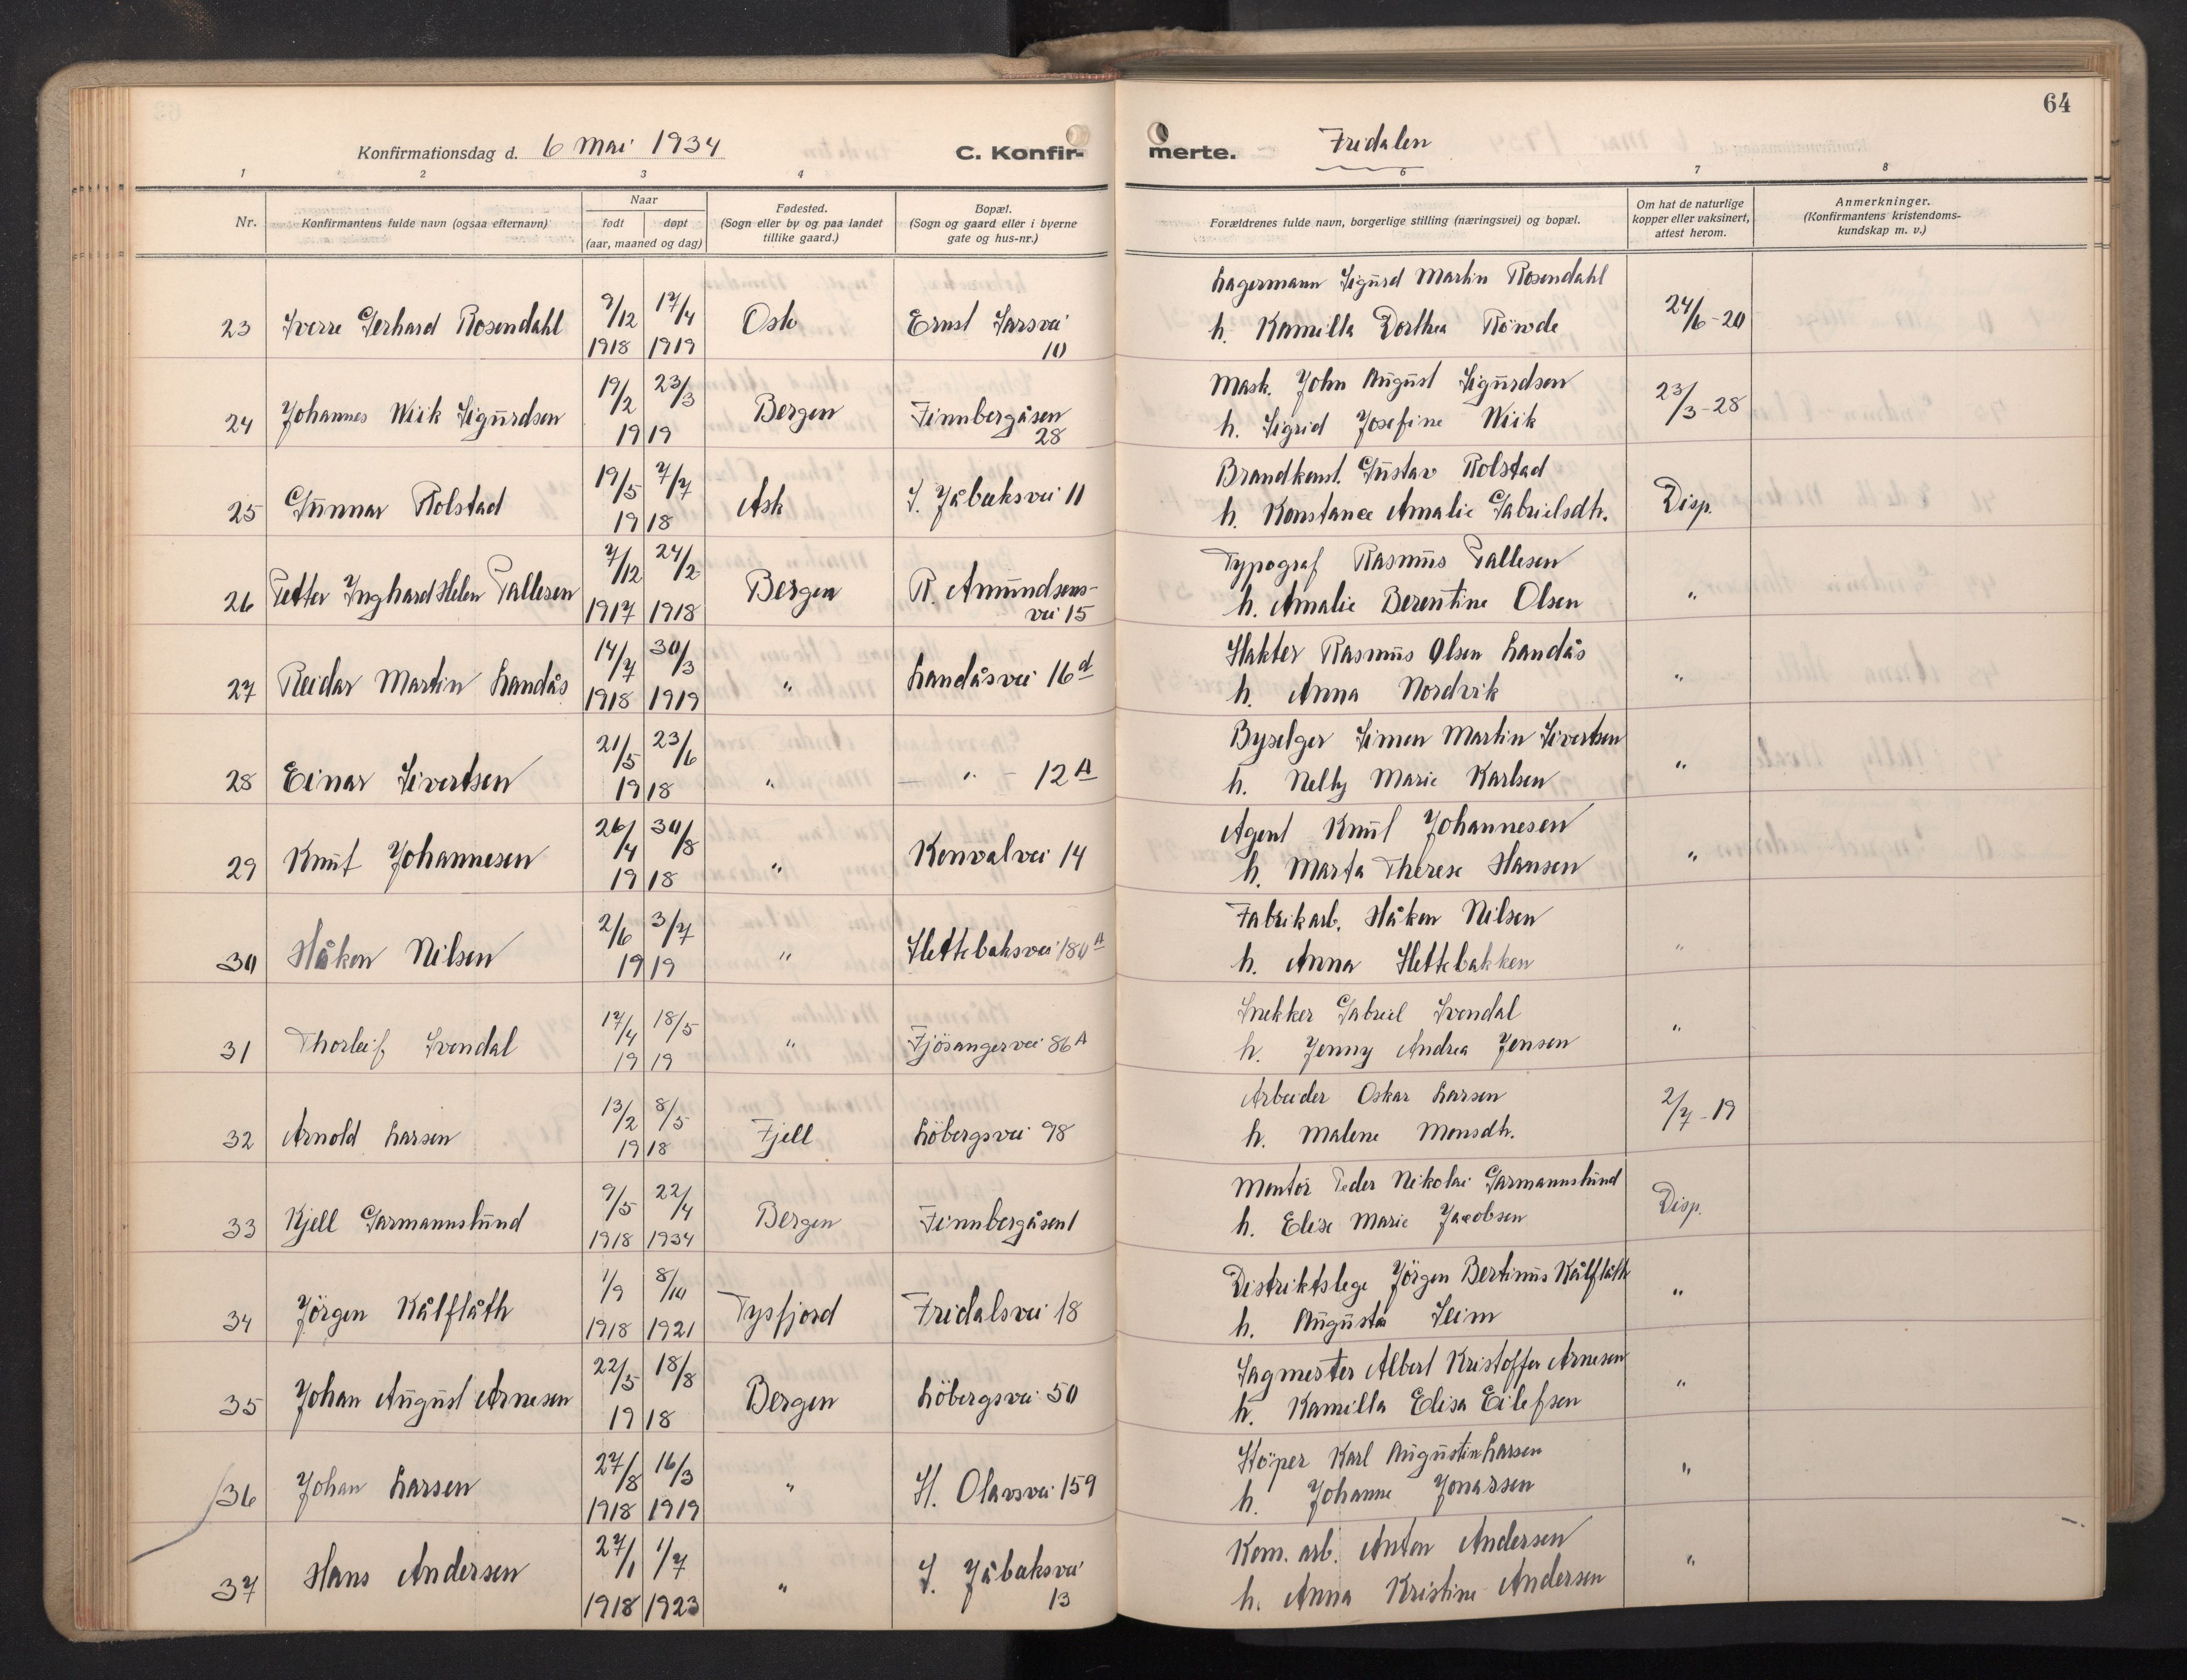 64
Konfirmationsdag d. 6 Mai 1934
C. Konfir-
merte.
Fridalen
1 2 3 4 6 7 8
Nr.
Konfirmantens fulde navn (ogsaa efternavn)
Naar
født døpt
(aar, maaned og dag)
Fødested.
(Sogn eller by og paa landet
tillike gaard.)
Bopæl.
(Sogn og gaard eller i byerne
gate og hus-nr.)
Forældrenes fulde navn, borgerlige stilling (næringsvei) og bopæl.
Om hat de naturlige
kopper eller vaksinert,
attest herom.
Anmerkninger.
(Konfirmantens kristendoms-
kundskap m. v.)
Lagermann Sigurd Martin Rosendahl
23 Sverre Gerhard Rosendahl 9/12 17/4 Oslo Ernst Sarsvei h. Kamilla Dorthea 24/6-20
1918 1919 10
19/2 23/3 Mask. John August Sigurdsen
24 Johannes Wiik Sigurdsen Bergen Finnbergåsen h. Sigrid Josefine Wiik 23/3-28
1919 28
19/5 7/7 Brandkonst. Gustav Rolstad
25 Gunnar Rolstad Ask J. Jåbæksvei 11 h. Konstance Amalie Gabrielsdtr. Disp.
1918
7/12 24/2 Typograf Rasmus Pallesen
26 Petter Inghard Helen Pallesen Bergen R. Amundsens- h. Amalie Berentine Olsen "
1917 1918 vei 15
14/7 30/3 Slakter Rasmus Olsen Landås
27 Reidar Martin Landås " Landåsvei 16d h. Anna Nordvik "
1918 1919
21/5 23/6 Byselger Simon Martin Sivertsen
28 Einar Sivertsen " — " — 12A h. Nelly Marie Karlsen "
1918
26/4 30/8 Agent Knut Johannesen
29 Knut Johannesen " Konvalvei 14 h. Marta Therese Hansen "
1918
2/6 3/7 Fabrikarb. Håkon Nilsen
30 Håkon Nilsen " Slettebaksvei 180A h. Anna Slettebakken "
1919
17/4 18/5 Snekker Gabriel Svendal
31 Thorleif Svendal " Fjøsangervei 86A h. Jenny Andrea Jensen "
1919
13/2 8/5 Arbeider Oskar Larsen
32 Arnold Larsen Fjell Löbergsvei 98 h. Malene Monsdtr. 2/7-19
1918
9/5 22/4 Montör Peder Nikolai Garmannslund
33 Kjell Garmannslund Bergen Finnbergåsen 1 h. Elise Marie Jacobsen Disp.
1918 1934
1/9 8/10 Distriktslege Jörgen Bertinus Kålflåth
34 Jörgen Kålflåth Tysfjord Fridalsvei 18 h. Augusta Seim "
1918 1921
22/5 18/8 Sagmester Albert Kristoffer Arnesen
35 Johan August Arnesen Bergen Löbergsvei 50 h. Kamilla Elisa Eilefsen "
1918
27/8 16/3 Stöper Karl Augustin Larsen
36 Johan Larsen " St. Olavsvei 159 h. Johanne Jonassen "
1918 1919
27/1 1/7 Kom. arb. Anton Andersen
37 Hans Andersen " J. Jåbæksvei h. Anna Kristine Andersen "
1918 1923 13